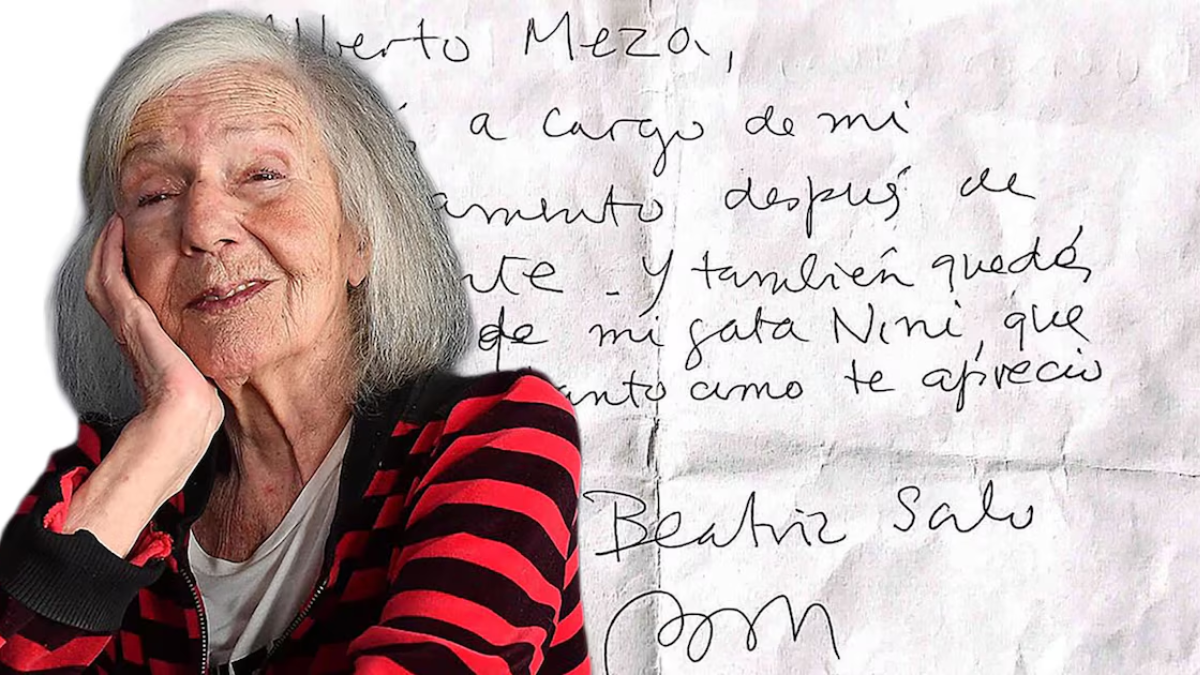 Alberto Meza,
a cargo de mi
amento despúes de
nte - y también quedás
de mi gata Nini, que
anto amo te aprecio
Beatriz Salo